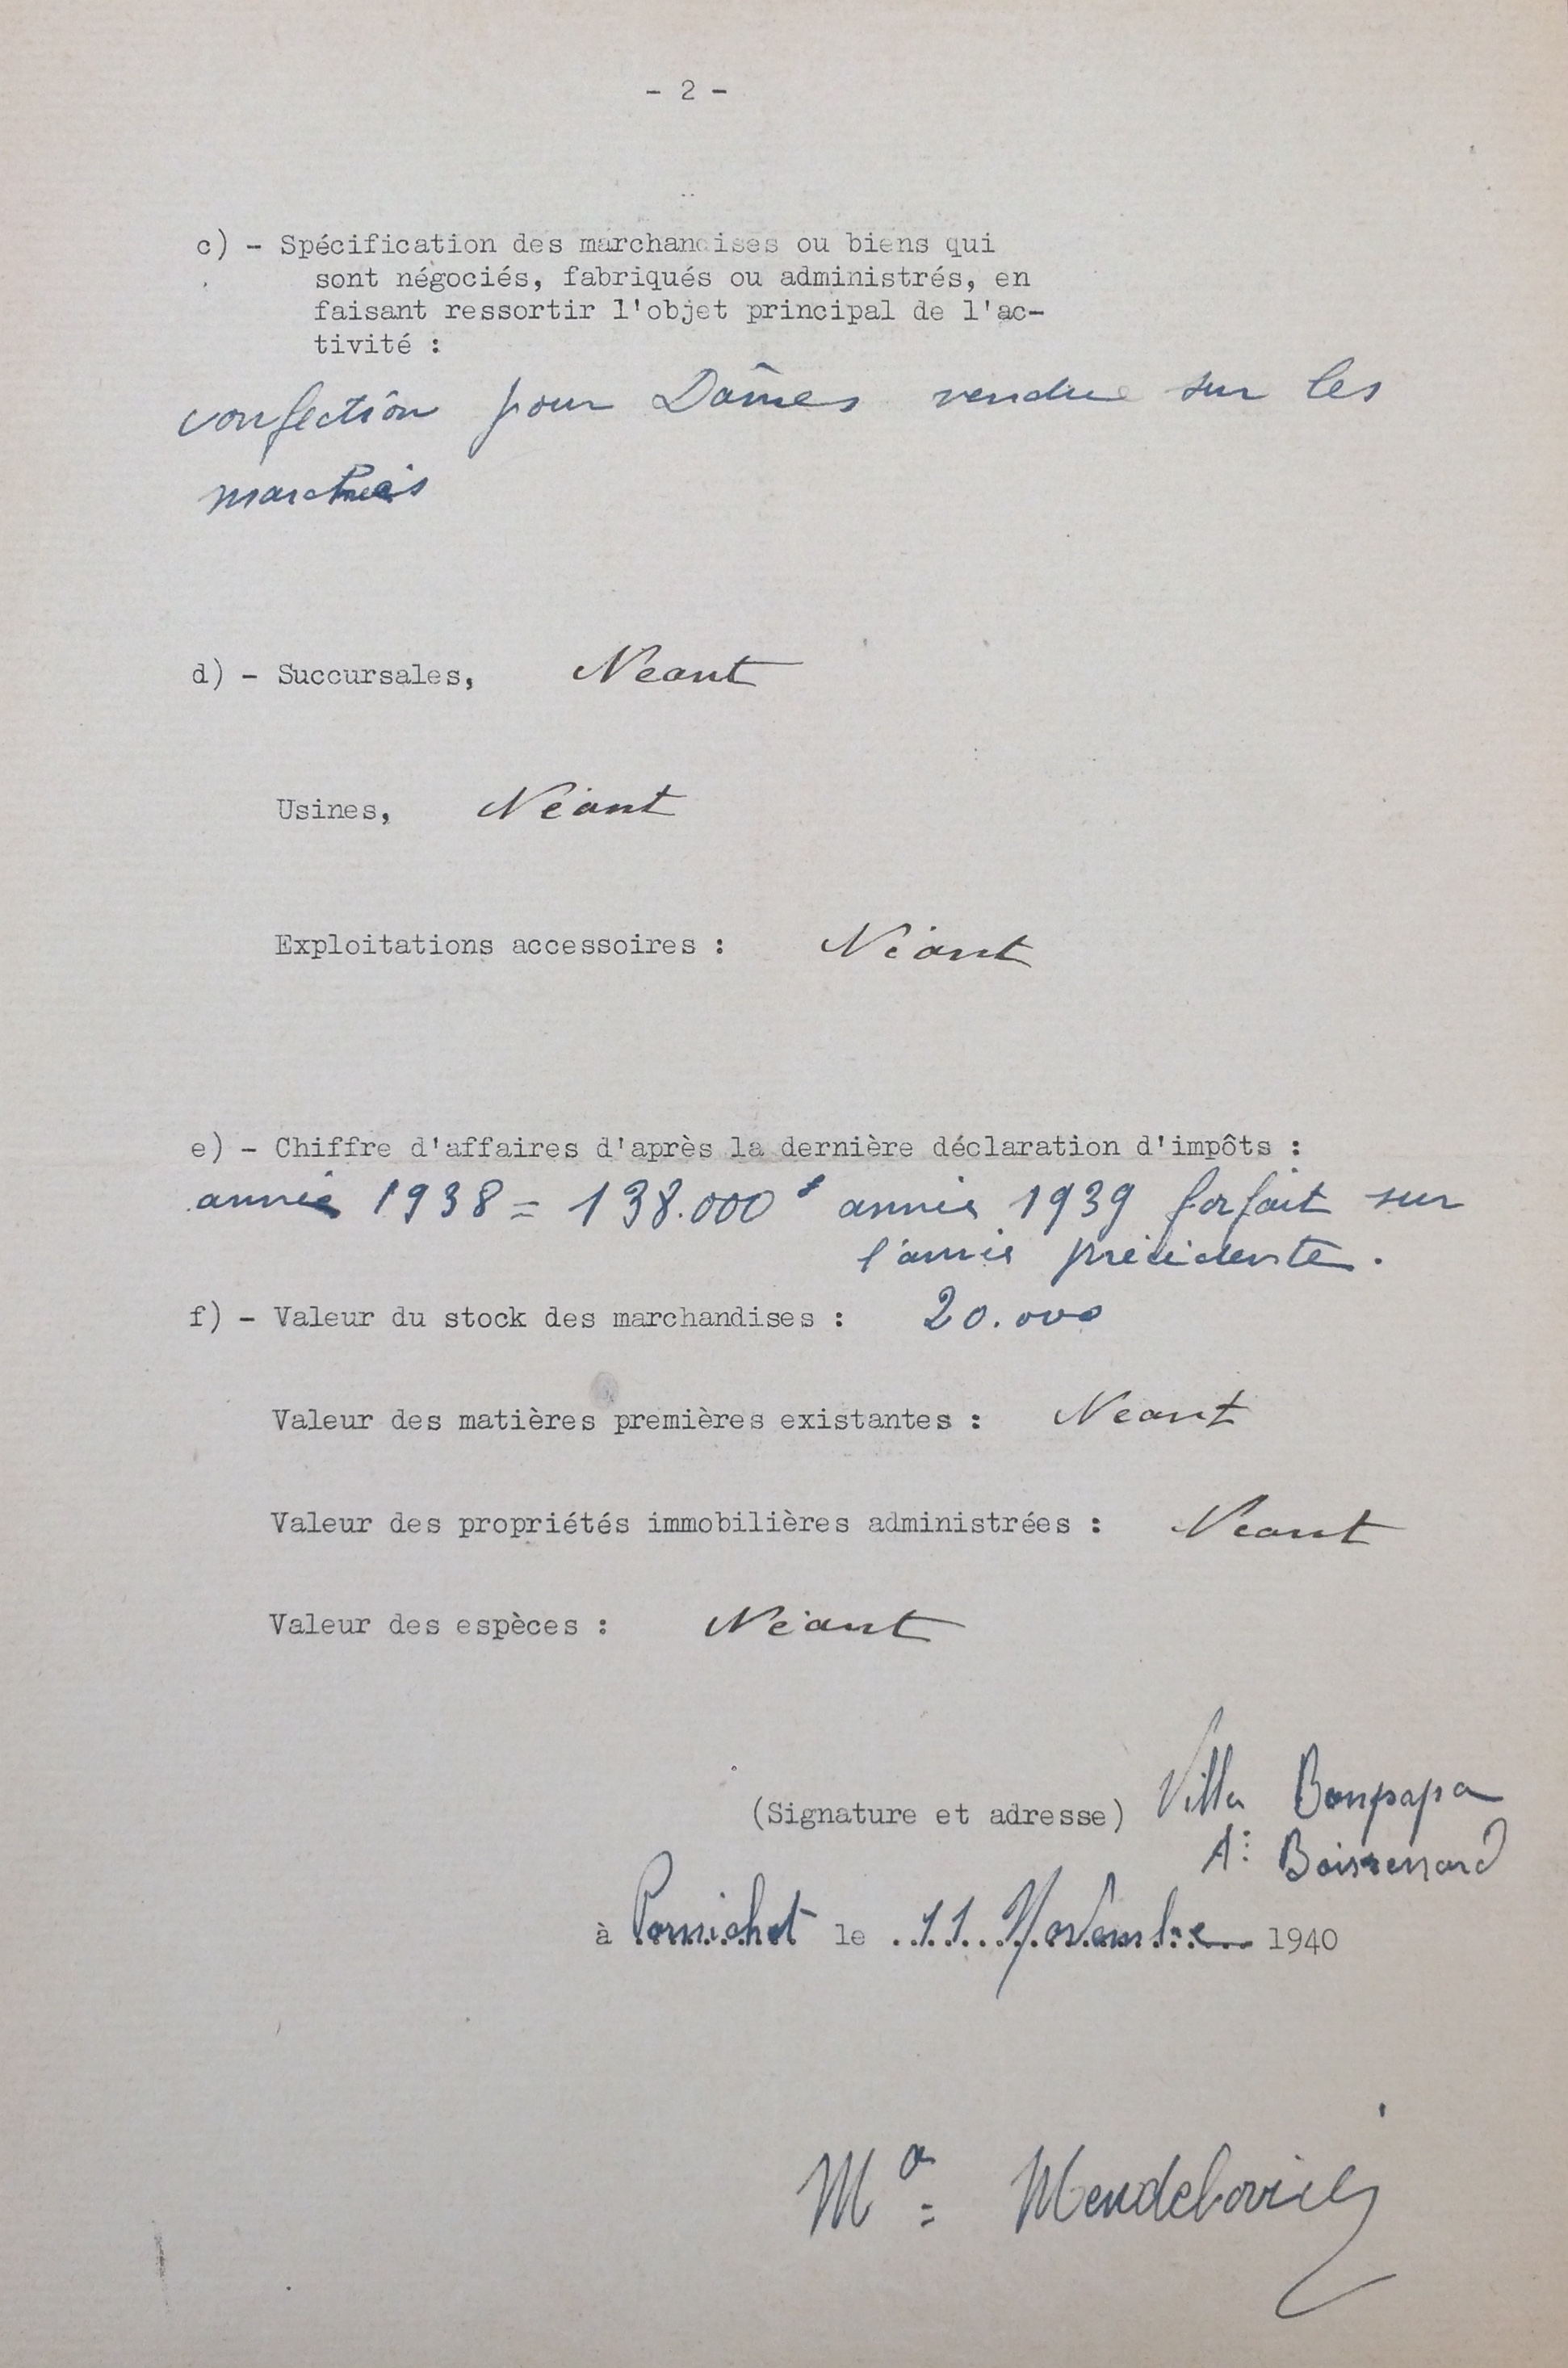 - 2 -
c) - Spécification des marchandises ou biens qui
sont négociés, fabriqués ou administrés, en
faisant ressortir l'objet principal de l'ac-
tivité :
confection pour Dames vendue sur les
marchés
d) - Succursales, Neant
Usines, Néant
Exploitations accessoires : Néant
e) - Chiffre d'affaires d'après la dernière déclaration d'impôts :
année 1938 = 138.000 f année 1939 forfait sur
l'année précédente.
f) - Valeur du stock des marchandises : 20.000
Valeur des matières premières existantes : Neant
Valeur des propriétés immobilières administrées : Neant
Valeur des espèces : Néant
(Signature et adresse) Villa Bonpapa
A: Boisrenard
à Pornichet le 11 Novembre 1940
Mendelovici